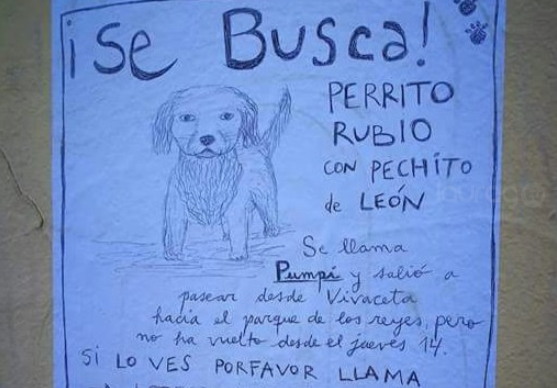 ¡Se Busca!
PERRITO
RUBIO
CON PECHITO
de LEÓN
Se llama
Pumpi y salió a
pasear desde Vivaceta
hacia el parque de los reyes, pero
no ha vuelto desde el jueves 14.
SI LO VES PORFAVOR LLAMA